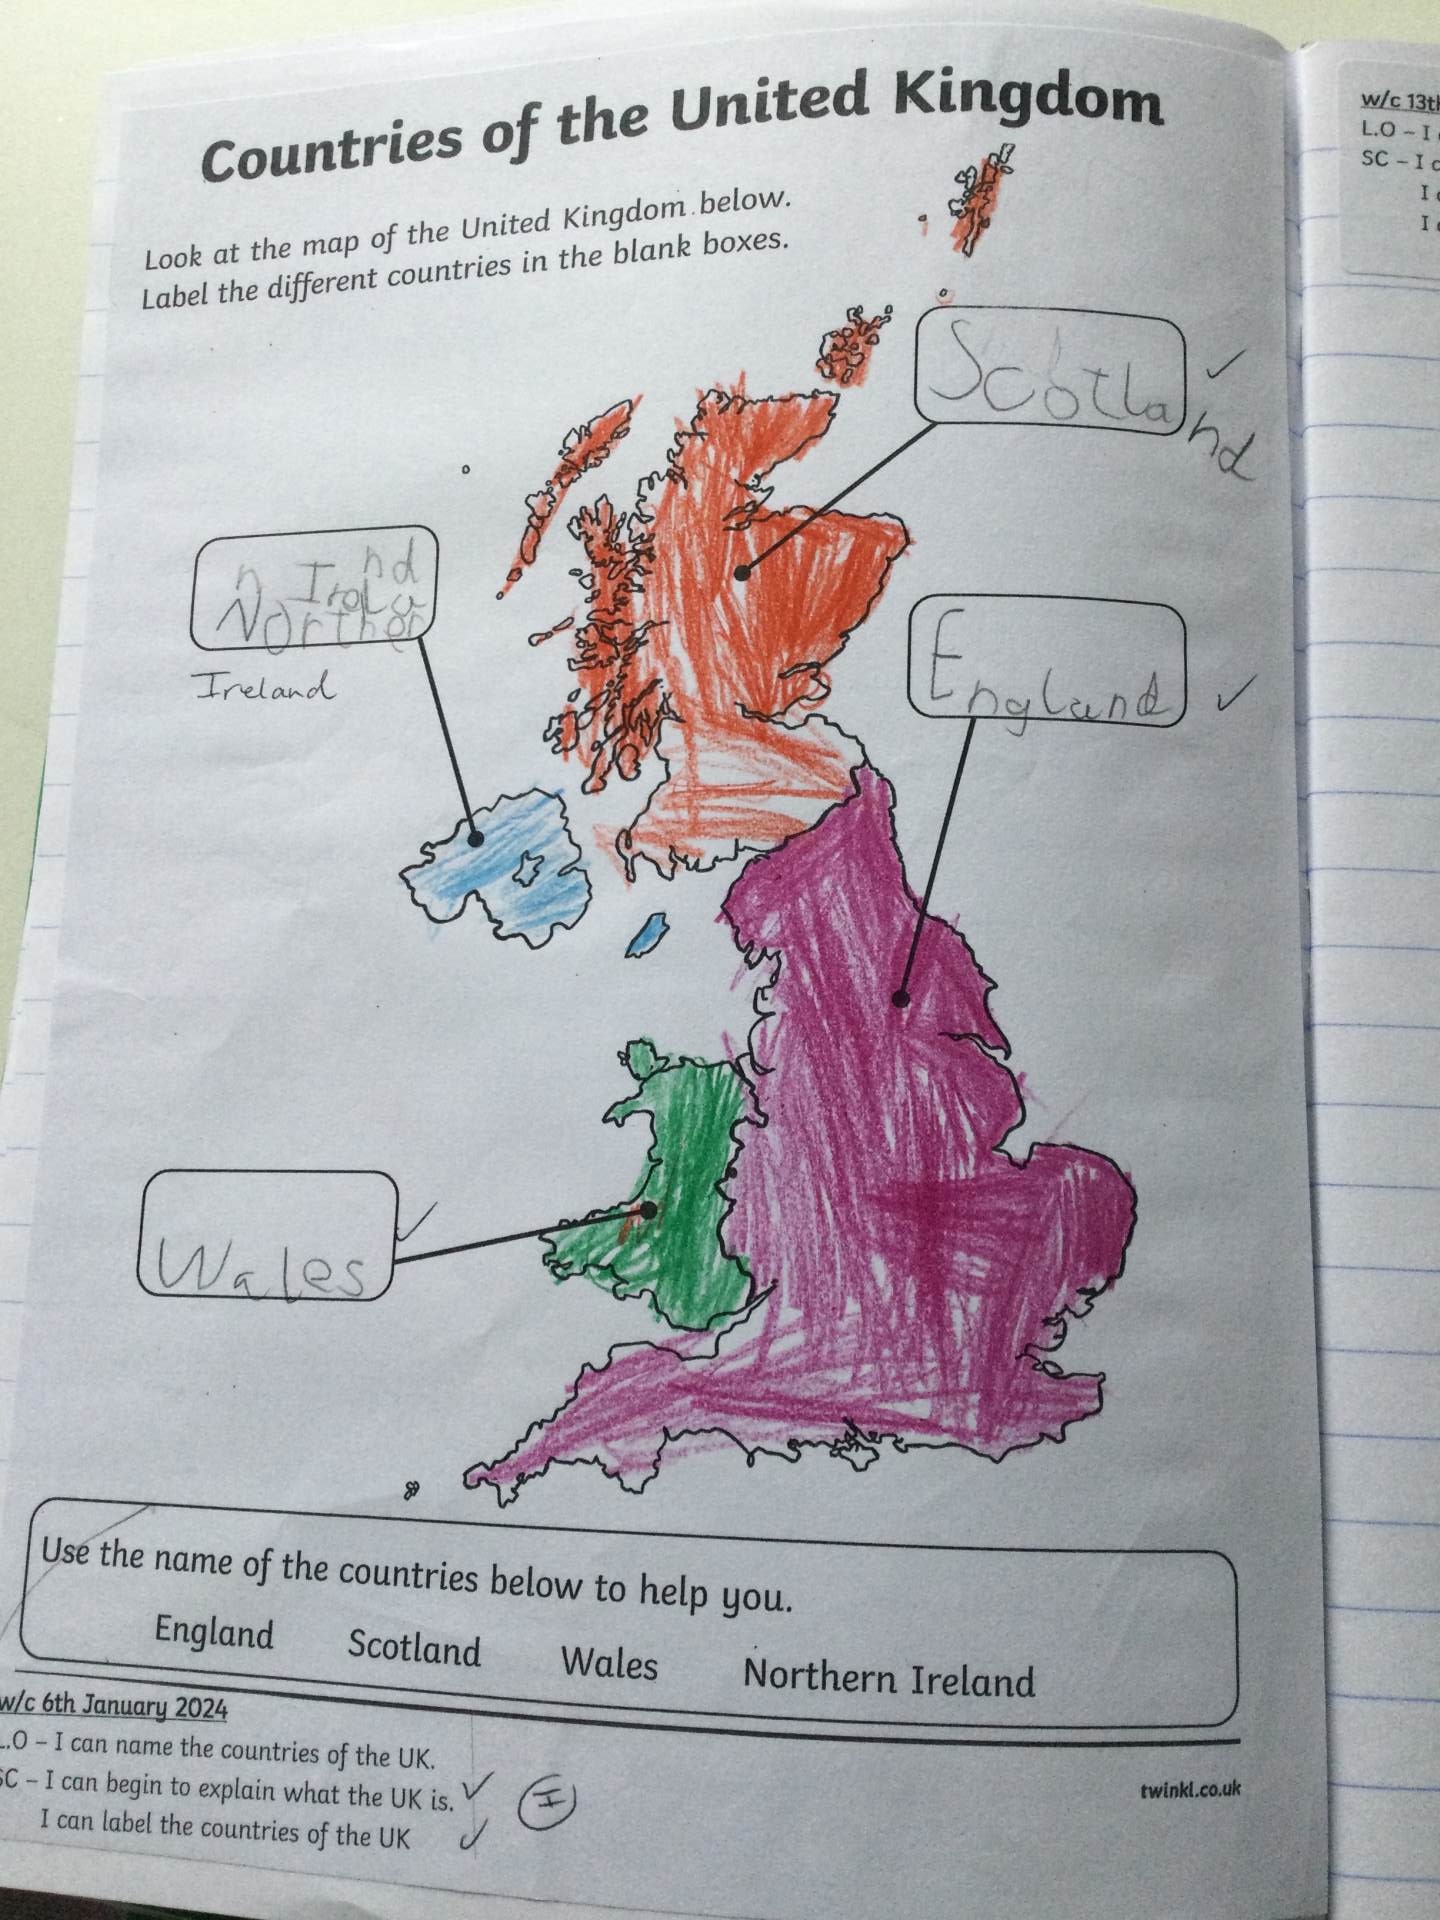 Countries of the United Kingdom
Look at the map of the United Kingdom below.
Label the different countries in the blank boxes.
Scotland
nd
n Irela
Norther
Ireland
England
Wales
Use the name of the countries below to help you.
England Scotland Wales Northern Ireland
w/c 6th January 2024
L.O – I can name the countries of the UK.
SC – I can begin to explain what the UK is.
I can label the countries of the UK
I
twinkl.co.uk
w/c 13th
L.O – I
SC – I c
I
I